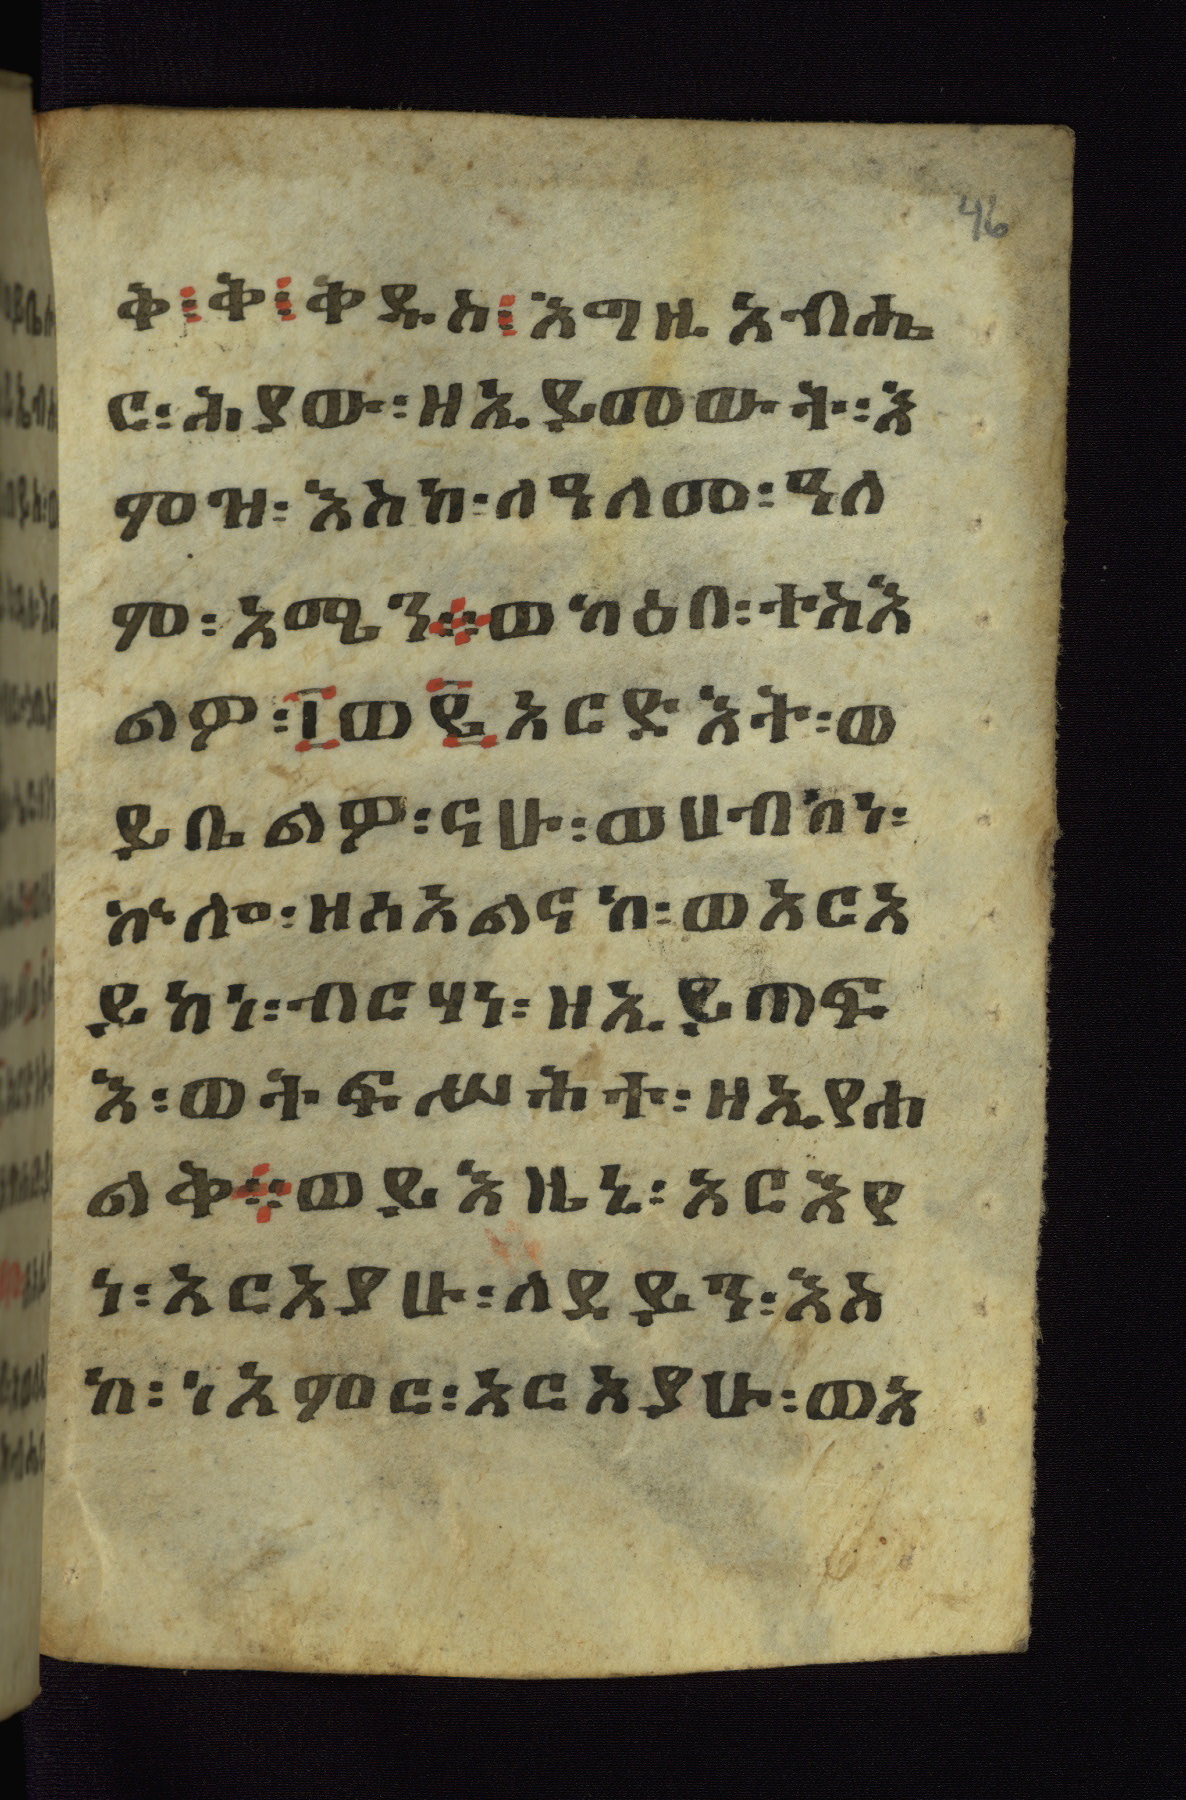 46
ቅ፧ ቅ፧ ቅዱስ፧ እግዚአብሔ
ር፡ ሕያው፡ ዘኢይመውት፡ እ
ምዝ፡ እስከ፡ ለዓለመ፡ ዓለ
ም፡ አሜን፨ ወካዕበ፡ ተስእ
ልዎ፡ ፲ወ፪አርድእት፡ ወ
ይቤልዎ፡ ናሁ፡ ወሀብከነ፡
ኵሎ፡ ዘሰአልናከ፡ ወአርአ
ይከነ፡ ብርሃነ፡ ዘኢይጠፍ
እ፡ ወትፍሥሕተ፡ ዘኢየሐ
ልቅ፨ ወይእዜኒ፡ አርእየ
ነ፡ አርአያሁ፡ ለደይን፡ እስ
ከ፡ ነአምር፡ አርአያሁ፡ ወአ